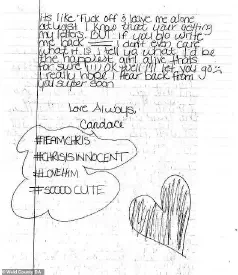 its like "Fuck off & leave me alone
at least I know that your getting
my letters. BUT if you do write
me back I don't even care
what it is I tell ya what, I'd be
the happiest girl alive thats
for sure (!!) Ok well I'll let you go
I really hope I hear back from
ya super soon
Love Always,
Candace
#TEAMCHRIS
#CHRISISINNOCENT
#LOVEHIM
#SOOOO CUTE
© Weld County DA